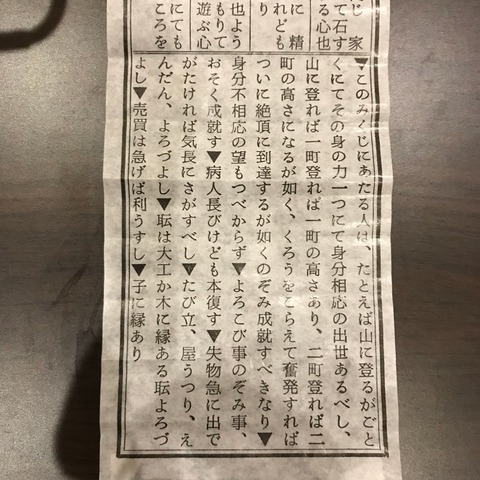 じ 家
て石す
る心也
に 精
れども
り
也よう
もりて
遊ぶ心
にても
ころを
▼このみくじにあたる人は、たとえば山に登るがごと
くにてその身の力一つにて身分相応の出世あるべし、
山に登れば一町登れば一町の高さあり、二町登れば二
町の高さになるが如く、くろうをこらえて奮発すれば
ついに絶頂に到達するが如くのぞみ成就すべきなり▼
身分不相応の望もつべからず▼よろこび事のぞみ事、
おそく成就す▼病人長びけども本復す▼失物急に出で
がたければ気長にさがすべし▼たび立、屋うつり、え
んだん、よろづよし▼耺は大工か木に縁ある耺よろづ
よし▼売買は急げば利うすし▼子に縁あり